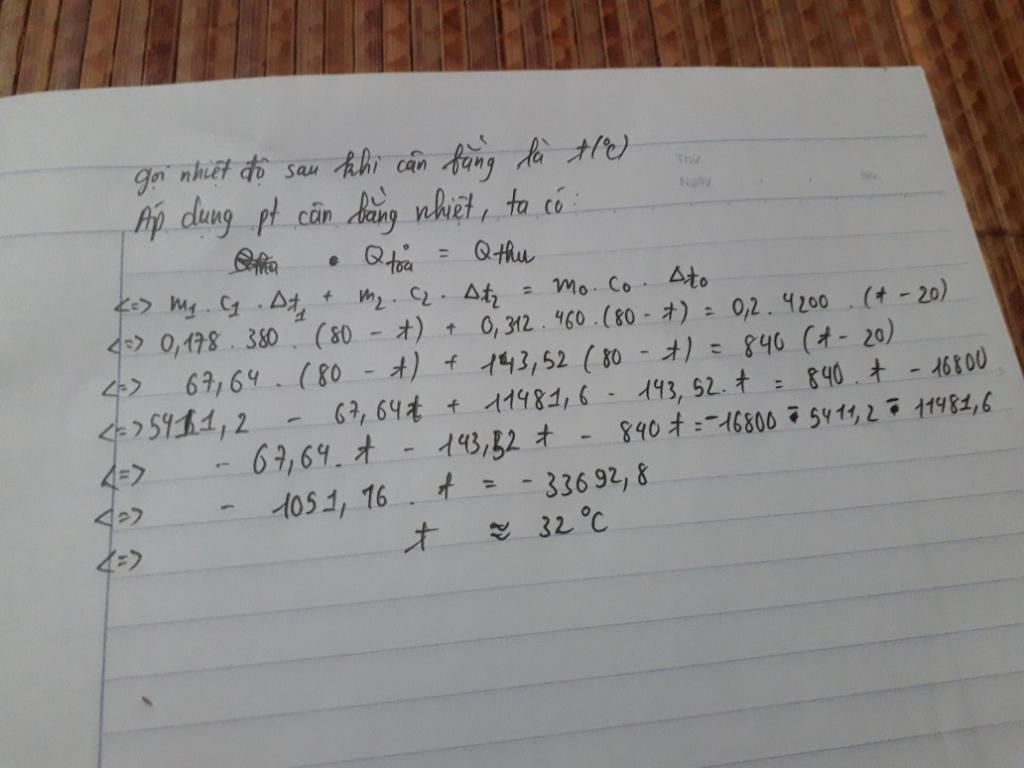 Thứ
Ngày
No.
gọi nhiệt độ sau khi cân bằng là t(°C)
Áp dụng pt cân bằng nhiệt, ta có:
• Qtỏa = Qthu
<=> m1 . c1 . Δt1 + m2 . c2 . Δt2 = m0 . c0 . Δt0
<=> 0,178 . 380 . (80 - t) + 0,312 . 460 . (80 - t) = 0,2 . 4200 . (t - 20)
<=> 67,64 . (80 - t) + 143,52 (80 - t) = 840 (t - 20)
<=> 5411,2 - 67,64t + 11481,6 - 143,52 . t = 840 . t - 16800
<=> - 67,64 . t - 143,52 t - 840 t = -16800 - 5411,2 - 11481,6
<=> - 1051,16 . t = - 33692,8
<=> t ≈ 32°C